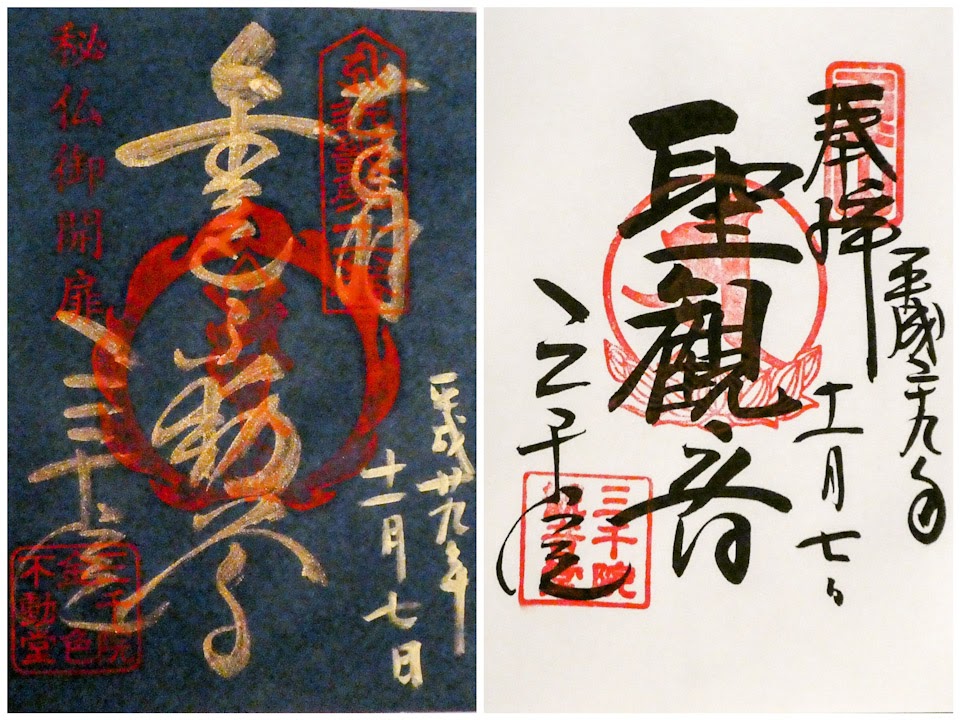 平成廿九年
十一月七日
金色不動尊
秘仏御開扉
三千院
三千院
金色
不動堂
平成二十九年
十一月七日
奉拝
聖観音
三千院
三千院
観音堂